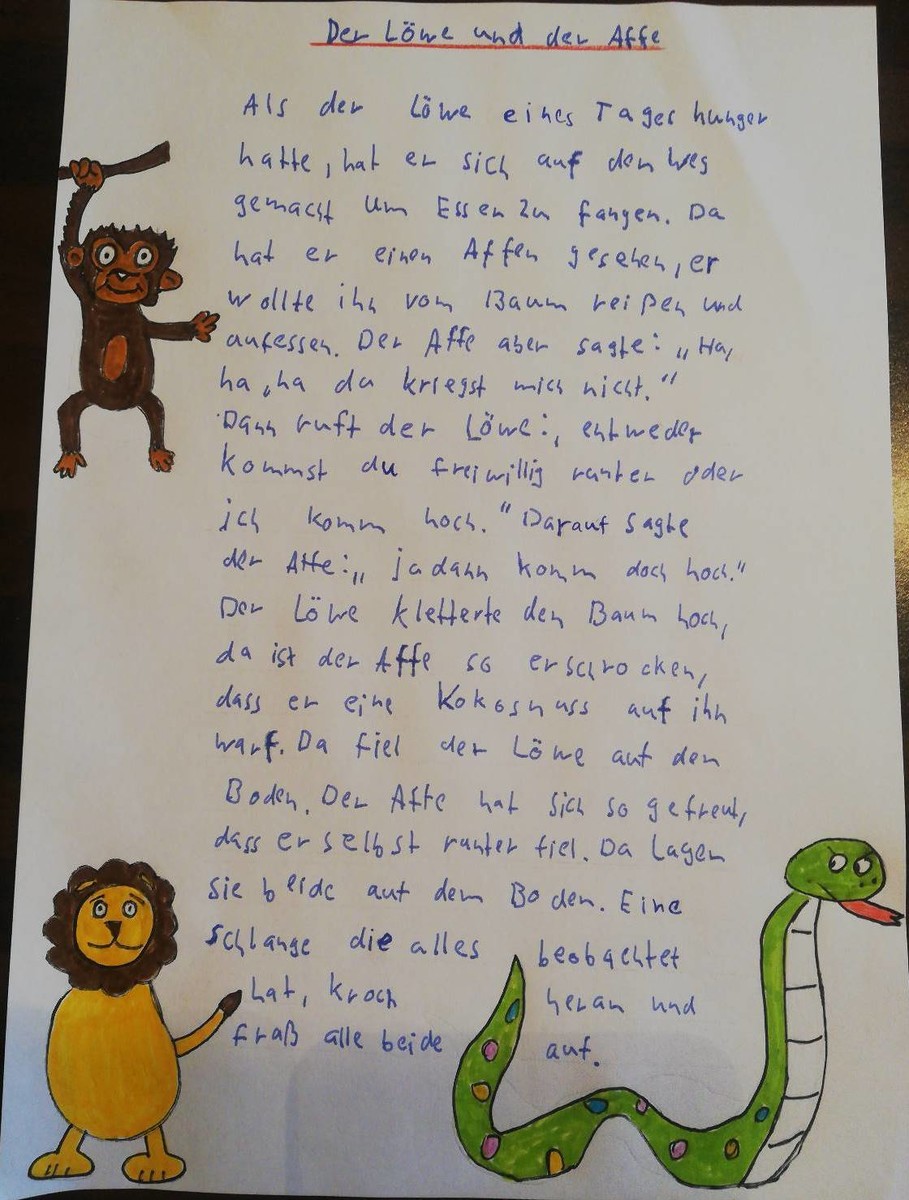 Der Löwe und der Affe
Als der Löwe eines Tages hunger
hatte, hat er sich auf den weg
gemacht um Essen zu fangen. Da
hat er einen Affen gesehen, er
wollte ihn vom Baum reißen und
aufessen. Der Affe aber sagte: „Ha,
ha, ha du kriegst mich nicht.“
Dann ruft der Löwe:„ entweder
kommst du freiwillig runter oder
ich komm hoch.“ Darauf sagte
der Affe:„ ja dann komm doch hoch.“
Der Löwe kletterte den Baum hoch,
da ist der Affe so erschrocken,
dass er eine Kokosnuss auf ihn
warf. Da fiel der Löwe auf den
Boden. Der Affe hat sich so gefreut,
dass er selbst runter fiel. Da lagen
sie beide auf dem Boden. Eine
schlange die alles beobachtet
hat, kroch heran und
fraß alle beide auf.